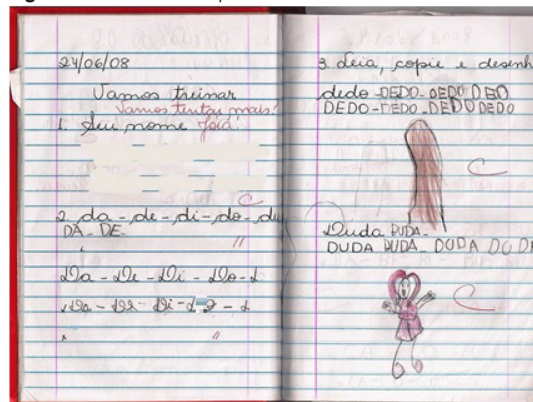 24/06/08
Vamos treinar
Vamos tentar mais!
1. Seu nome
C
2. da - de - di - do - du
DA - DE -
"
Da - De - Di - Do - D
Da - De - Di - D
"
3. Leia, copie e desenh
dedo - DEDO - DEDO DEDO
DEDO - DEDO - DEDO DEDO
C
Duda DUDA -
DUDA DUDA - DUDA DUD
C